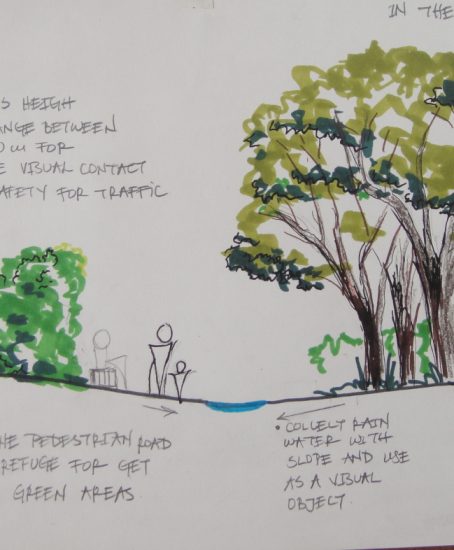 IN THE
S HEIGH
ANGE BETWEEN
FOR
E VISUAL CONTACT
AFETY FOR TRAFFIC
HE PEDESTRIAN ROAD
REFUGE FOR GET
GREEN AREAS.
• COLLELT RAIN
WATER WITH
SLOPE AND USE
AS A VISUAL
OBJECT.